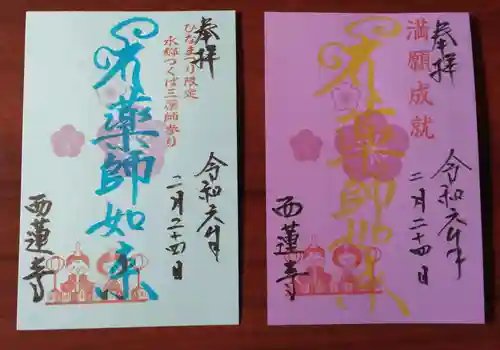 奉拝
ひなまつり限定
水郷つくば三薬師参り
薬師如来
令和六年
二月二十四日
西蓮寺
満願成就
奉拝
薬師如来
令和六年
二月二十四日
西蓮寺